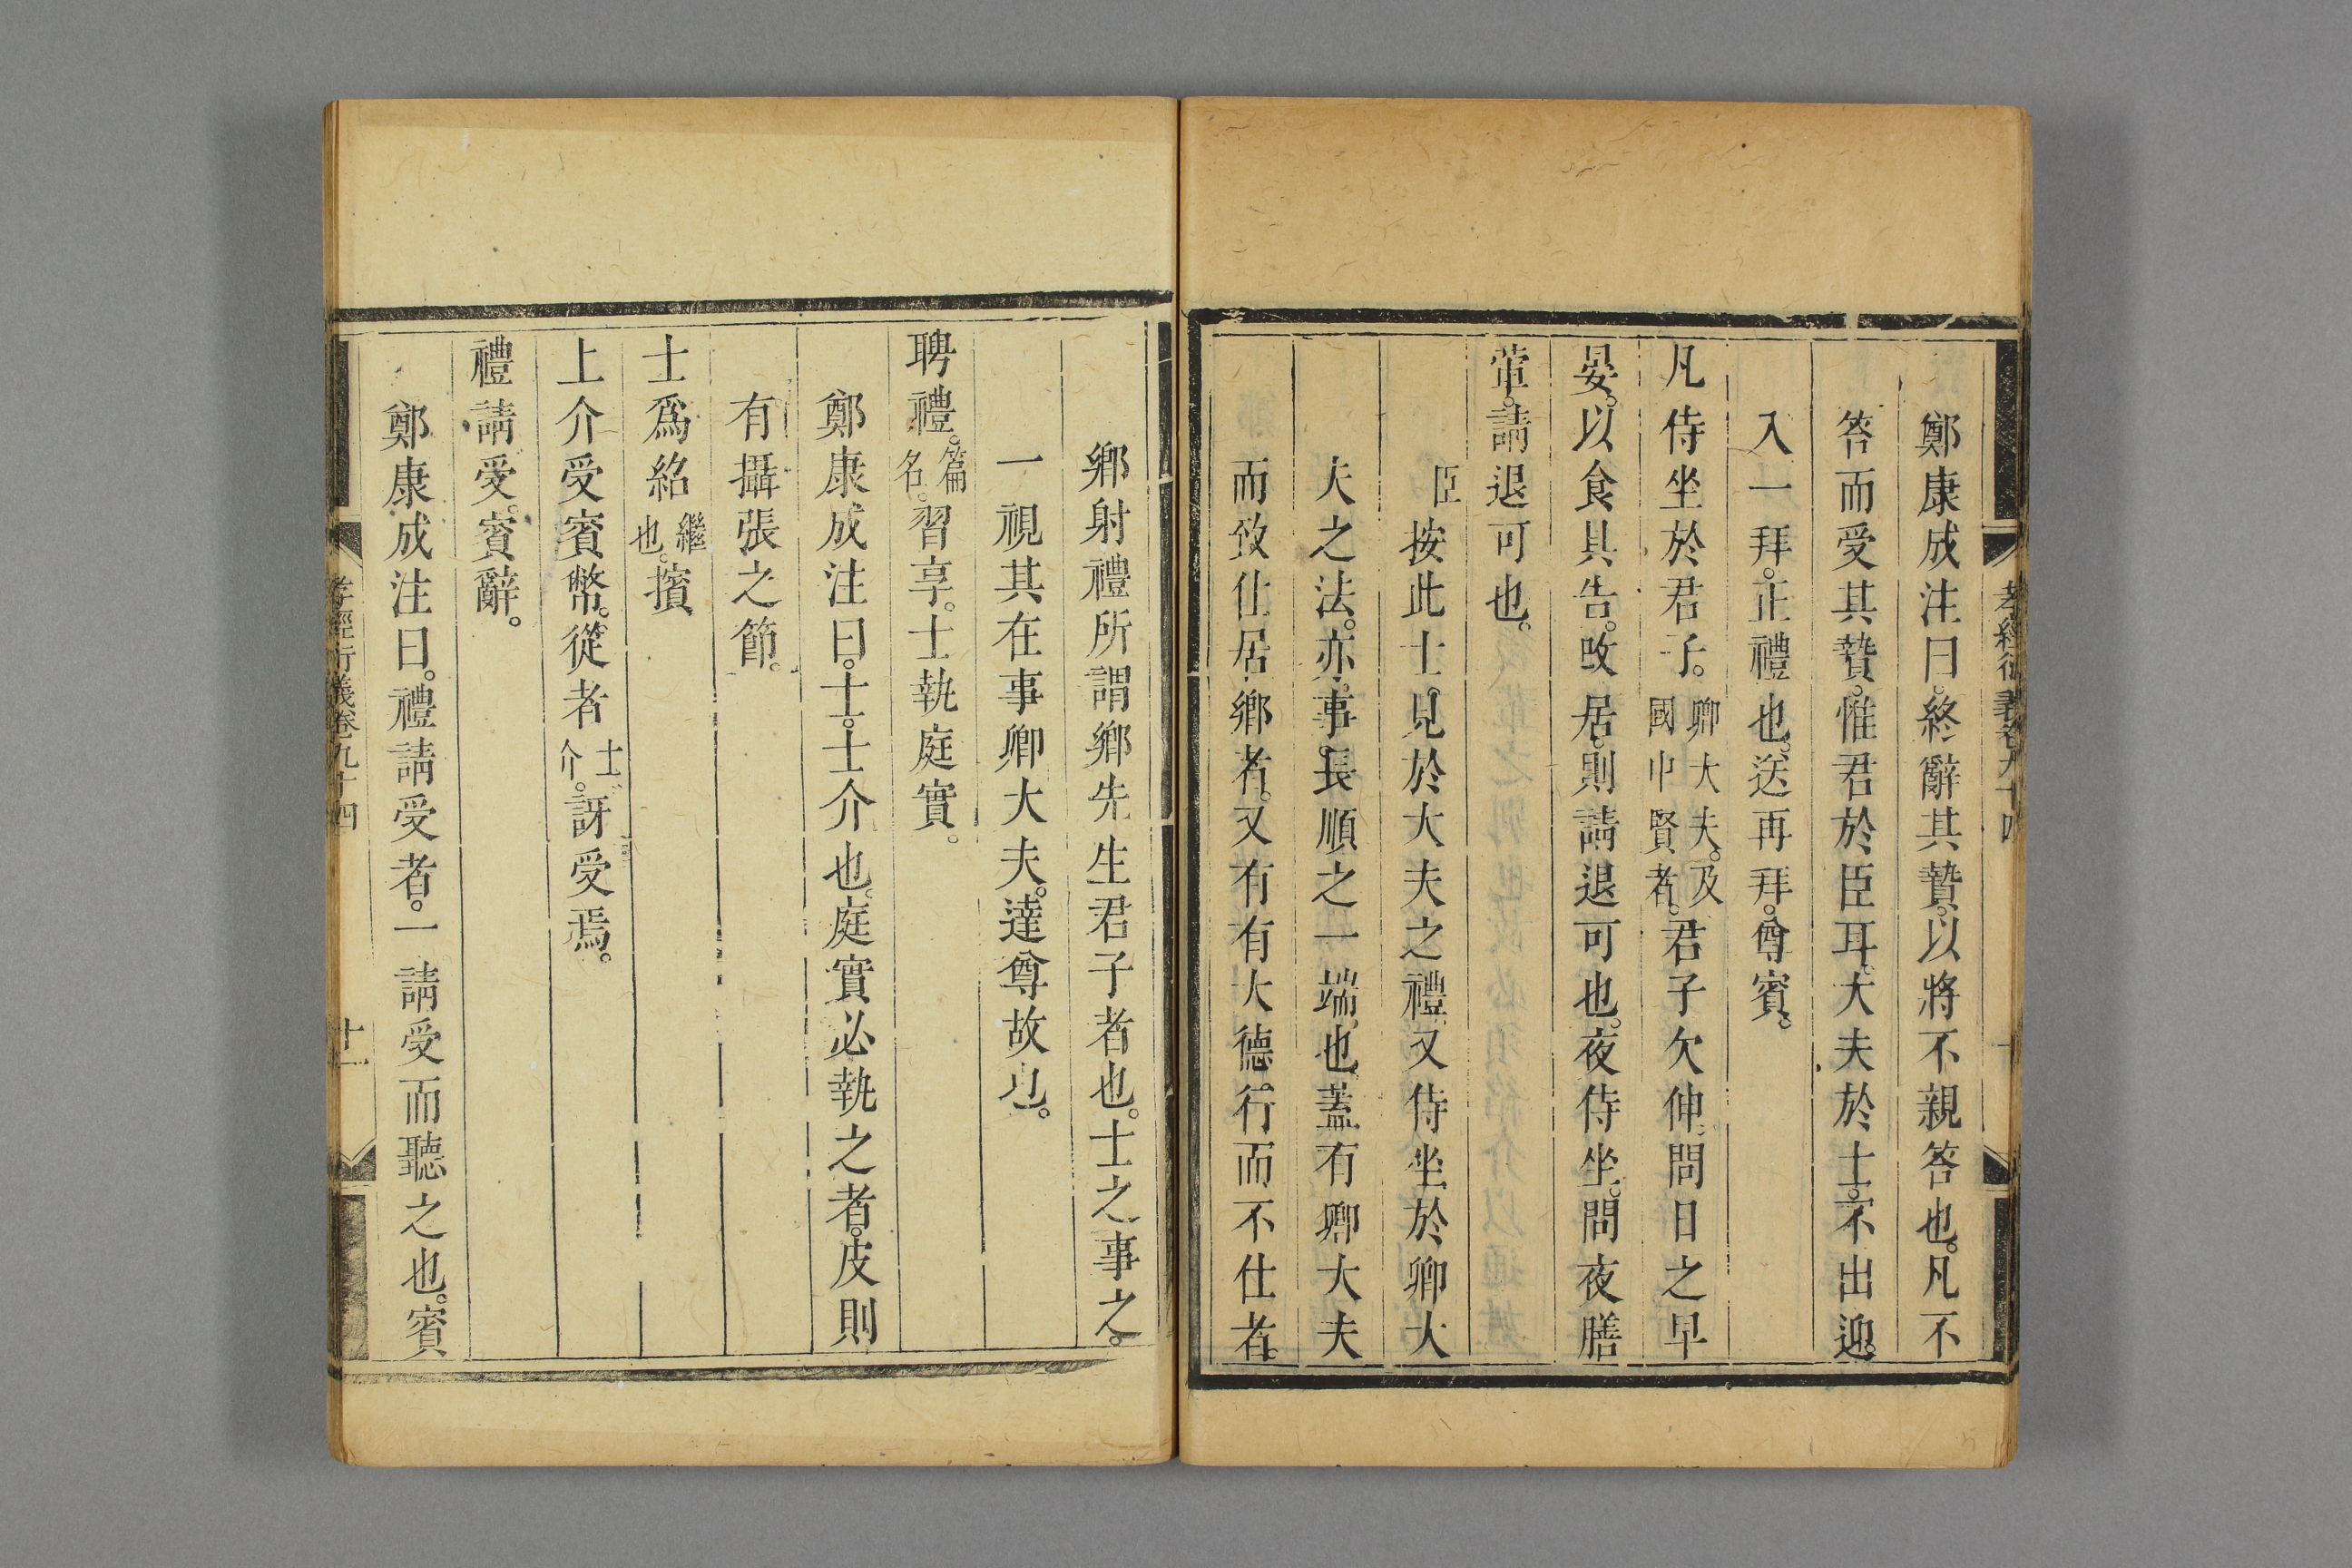 孝經衍義卷九十四
鄭康成注曰。終辭其贄。以將不親答也。凡不
答而受其贄。惟君於臣耳。大夫於士。不出迎。
入一拜。正禮也。送再拜。尊賓。
凡侍坐於君子。卿大夫。及國中賢者。君子欠伸。問日之早
晏。以食具告。改居。則請退可也。夜侍坐。問夜膳
葷。請退可也。
臣按此士。見於大夫之禮。又侍坐於卿大
夫之法。亦事長順之一端也。蓋有卿大夫
而致仕居鄉者。又有有大德。行而不仕者。
鄉射禮所謂鄉先生君子者也。士之事之。
一視其在事卿大夫。達尊故也。
聘禮。篇名。習享。士執庭實。
鄭康成注曰。士。士介也。庭實必執之者。皮則
有攝張之節。
士爲紹繼也。擯
上介受賓幣。從者士介。訝受焉。
禮請受。賓辭。
鄭康成注曰。禮請受者。一請受而聽之也。賓
孝經衍義卷九十四
十一